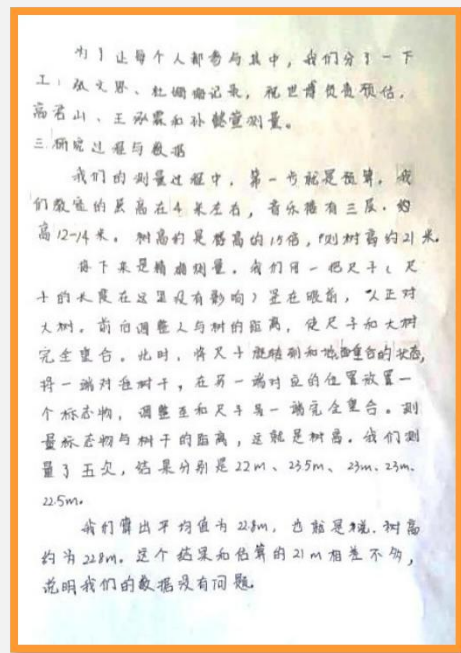 为了让每个人都参与其中，我们分了一下
工：张文思、杜姗姗记录，祝世博负责预估，
高若山、王承霖和孙懿萱测量。
三.研究过程与数据
我们的测量过程中，第一步就是预算，我
们教室的层高在4米左右，音乐楼有三层，约
高12-14米。树高约是楼高的1.5倍，则树高约21米。
接下来是精确测量。我们用一把尺子（尺
子的长度在这里没有影响）竖在眼前，人正对
大树。前后调整人与树的距离，使尺子和大树
完全重合。此时，将尺子旋转到和地面重合的状态，
将一端对准树干，在另一端对应的位置放置一
个标志物，调整至和尺子另一端完全重合。测
量标志物与树干的距离，这就是树高。我们测
量了五次，结果分别是22m、23.5m、23m、23m、
22.5m。
我们算出平均值为22.8m，也就是说，树高
约为22.8m。这个结果和估算的21m相差不多，
说明我们的数据没有问题。